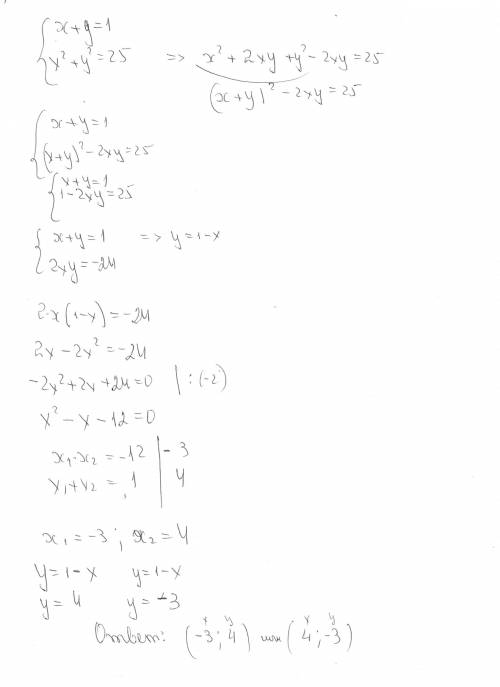 x+y=1
x²+y²=25 => x²+2xy+y²-2xy=25
(x+y)²-2xy=25
x+y=1
(x+y)²-2xy=25
x+y=1
1-2xy=25
x+y=1 => y=1-x
2xy=-24
2·x(1-x)=-24
2x-2x²=-24
-2x²+2x+24=0 | :(-2)
x²-x-12=0
x₁·x₂=-12 | -3
x₁+x₂=1 | 4
x₁=-3; x₂=4
y=1-x y=1-x
y=4 y=-3
x y x y
Ответ: (-3; 4) или (4; -3)